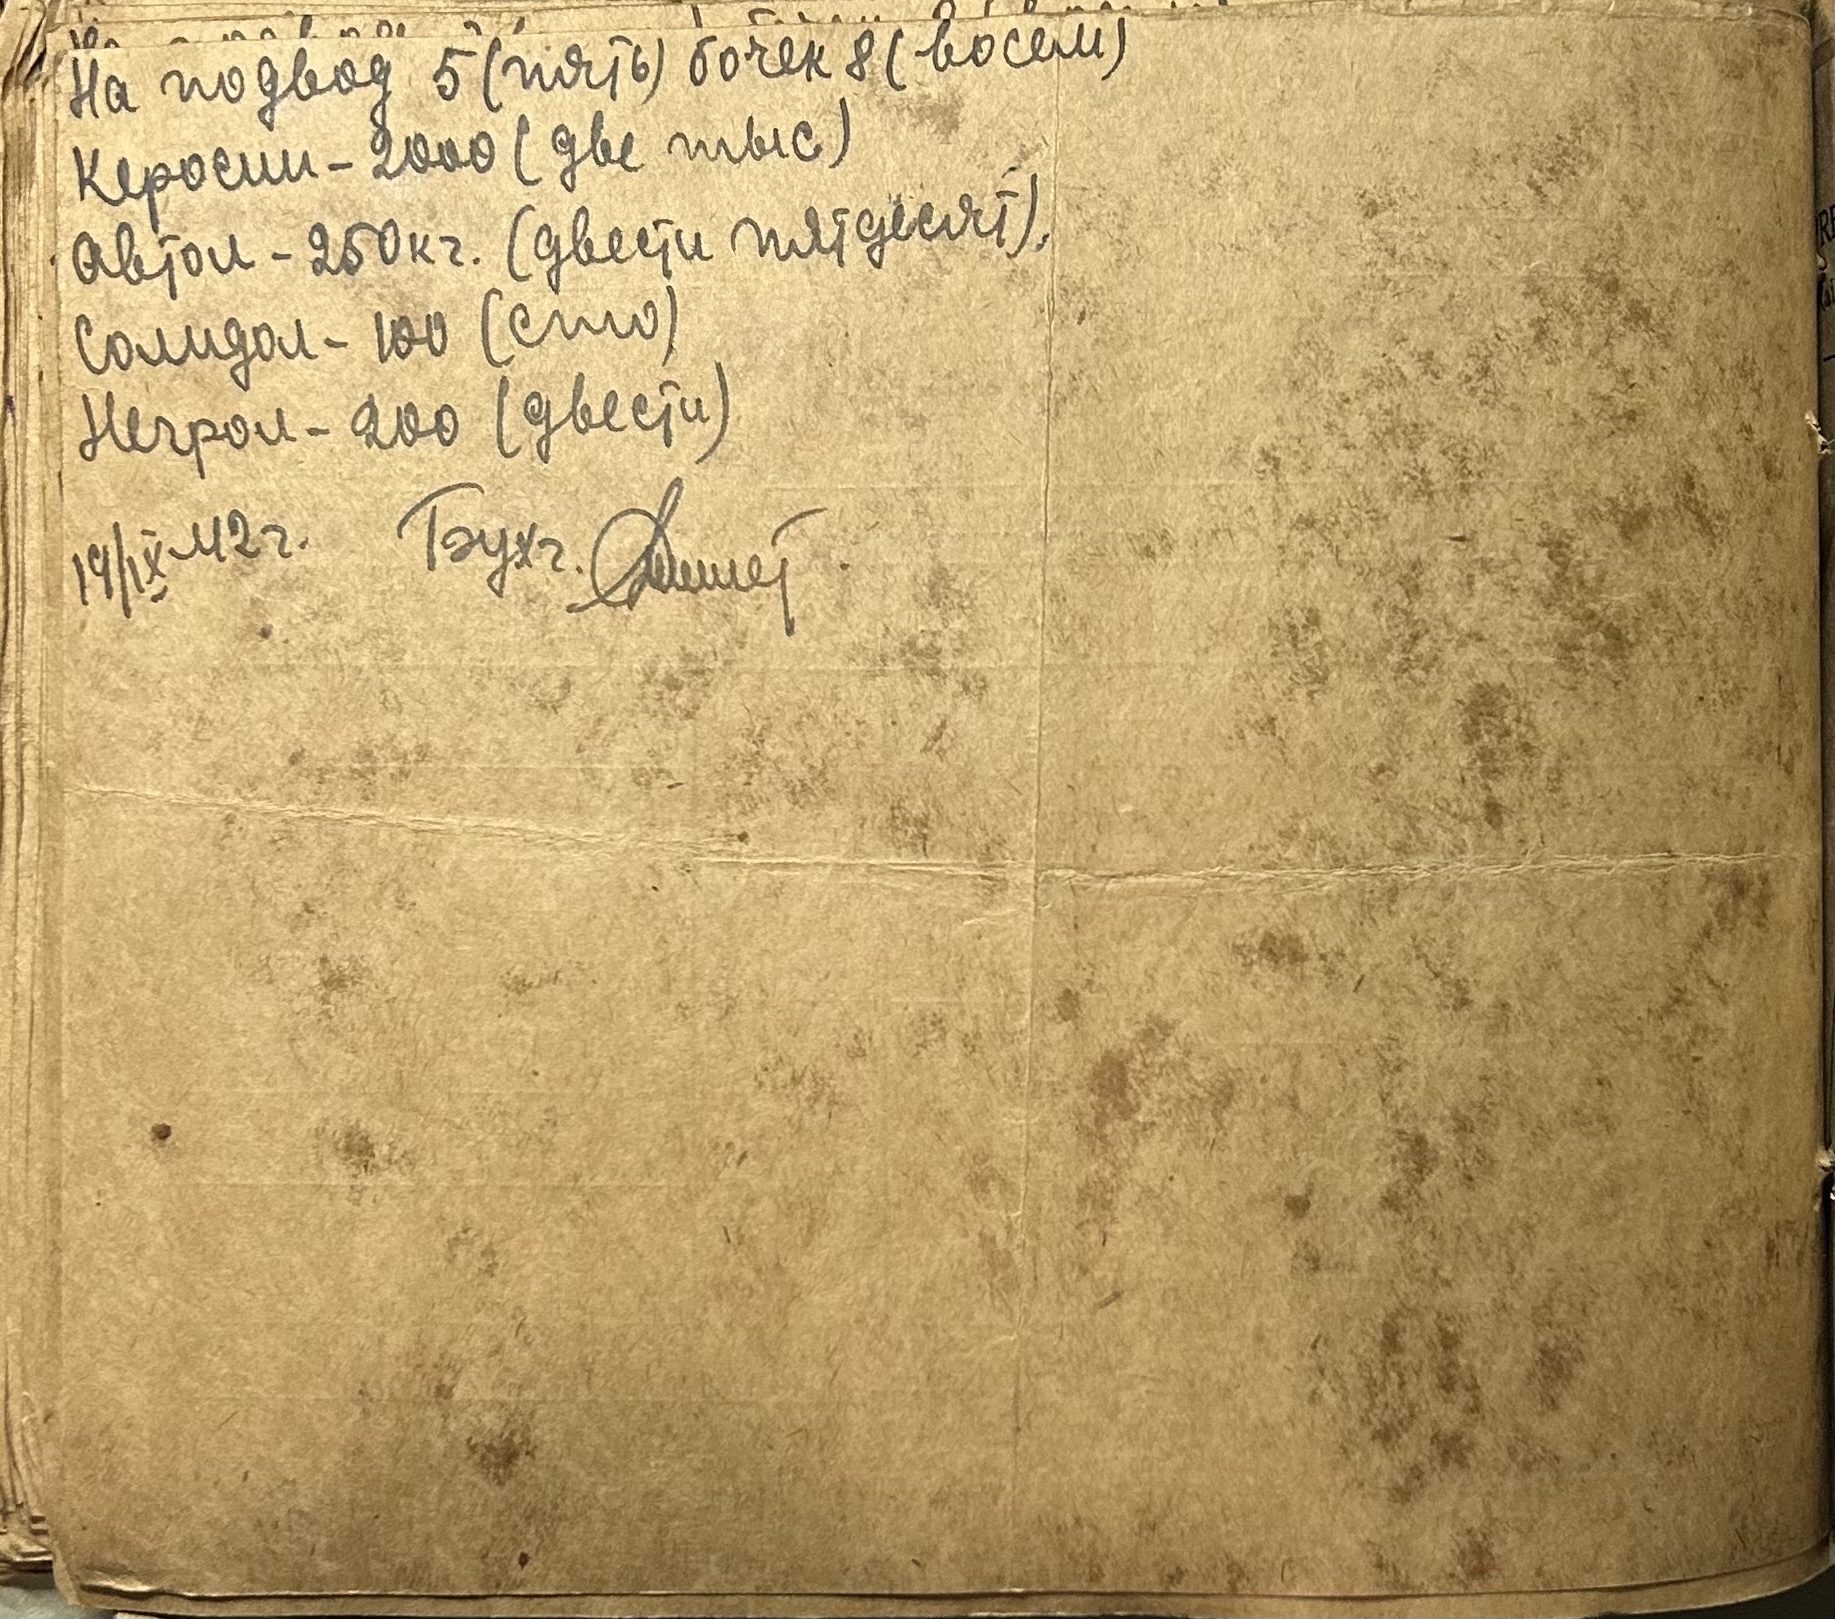 На подвод 5 (пять) бочек 8 (восем)
Керосин - 2000 (две тыс)
Автол - 250 кг. (двести пятдесят).
Солидол - 100 (сто)
Негрол - 200 (двести)
19/IX 42 г. Бухг.